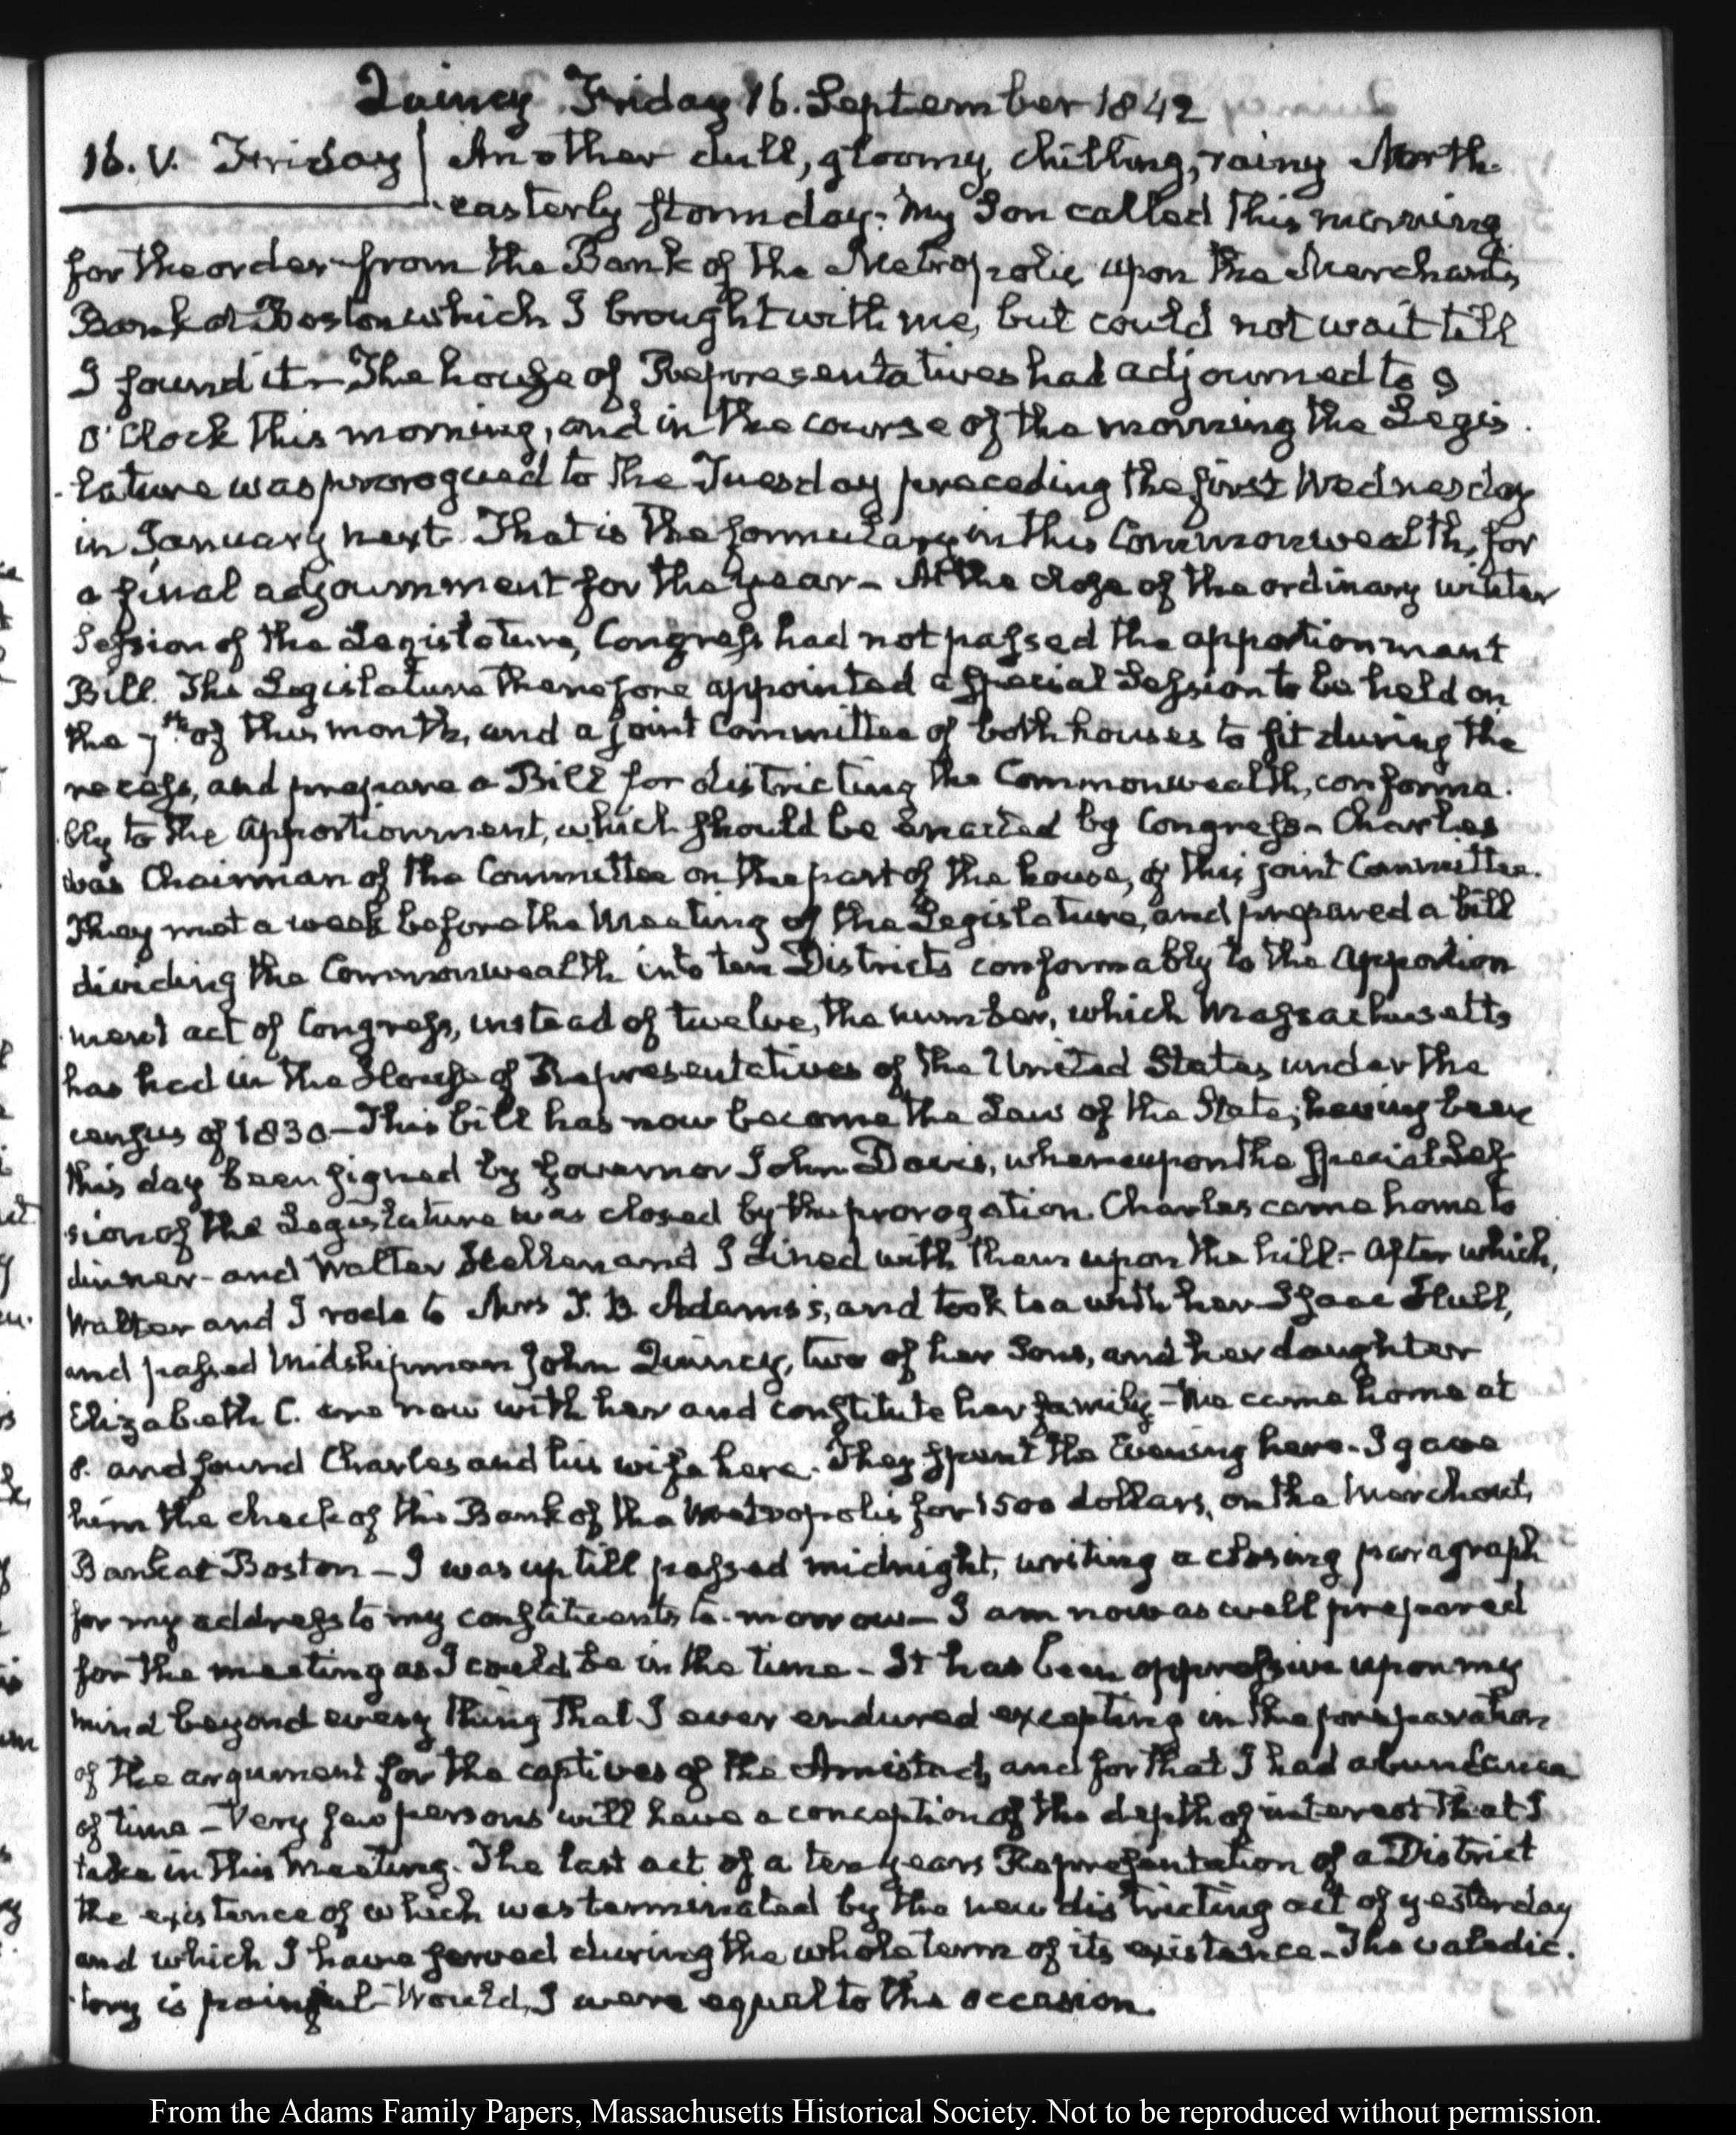 Quincy Friday 16. September 1842
16. V. Friday Another dull, gloomy, chilling, rainy North-
easterly storm day. My Son called this morning
for the order from the Bank of the Metropolis upon the Merchants
Bank at Boston which I brought with me, but could not wait till
I found it – The house of Representatives had adjourned to 9
O'Clock this morning, and in the course of the morning the Legis-
lature was prorogued to the Tuesday preceding the first Wednesday
in January next. That is the formulary in this Commonwealth, for
a final adjournment for the year – At the close of the ordinary winter
Session of the Legislature, Congress had not passed the apportionment
Bill. The Legislature therefore appointed a special Session to be held on
the 7th of this month, and a joint Committee of both houses to sit during the
recess, and prepare a Bill for districting the Commonwealth, conforma-
bly to the Apportionment, which should be enacted by Congress – Charles
was Chairman of the Committee on the part of the house, of this joint Committee.
They met a week before the Meeting of the Legislature, and prepared a bill
dividing the Commonwealth into ten Districts conformably to the Apportion
ment act of Congress, instead of twelve, the number, which Massachusetts
has had in the House of Representatives of the United States under the
census of 1830 – This bill has now become the Law of the State; having been
this day been signed by Governor John Davis, whereupon the special Ses-
sion of the Legislature was closed by the prorogation. Charles came home to
dinner – and Walter Hellen and I dined with them upon the hill. – After which,
Walter and I rode to Mrs T. B. Adams's, and took tea with her. Isaac Hull,
and passed Midshipman John Quincy, two of her Sons, and her daughter
Elizabeth C. are now with her and constitute her family – We came home at
8. and found Charles and his wife here. They spent the Evening here. I gave
him the check of the Bank of the Metropolis for 1500 dollars, on the Merchants
Bank at Boston – I was up till passed midnight, writing a closing paragraph
for my address to my constituents to-morrow – I am now as well prepared
for the meeting as I could be in the time – It has been oppressive upon my
mind beyond every thing that I ever endured excepting in the preparation
of the argument for the captives of the Amistad, and for that I had abundance
of time – Very few persons will have a conception of the depth of interest that I
take in this Meeting. The last act of a ten years Representation of a District
the existence of which was terminated by the new districting act of yesterday
and which I have served during the whole term of its existence – The valedic-
tory is painful – Would, I were equal to the occasion.
From the Adams Family Papers, Massachusetts Historical Society. Not to be reproduced without permission.